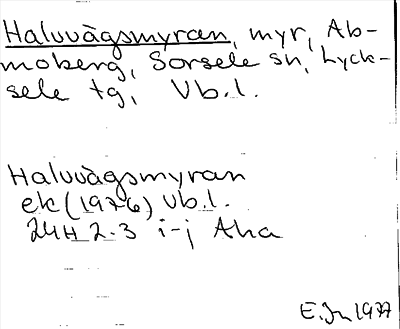 Halvvägsmyran, myr, Ab-
moberg, Sorsele sn, Lyck-
sele tg, Vb.l.
Halvvägsmyran
ek (1976) Vb.l.
24H 2-3 i-j Aha
E.Jn 1977